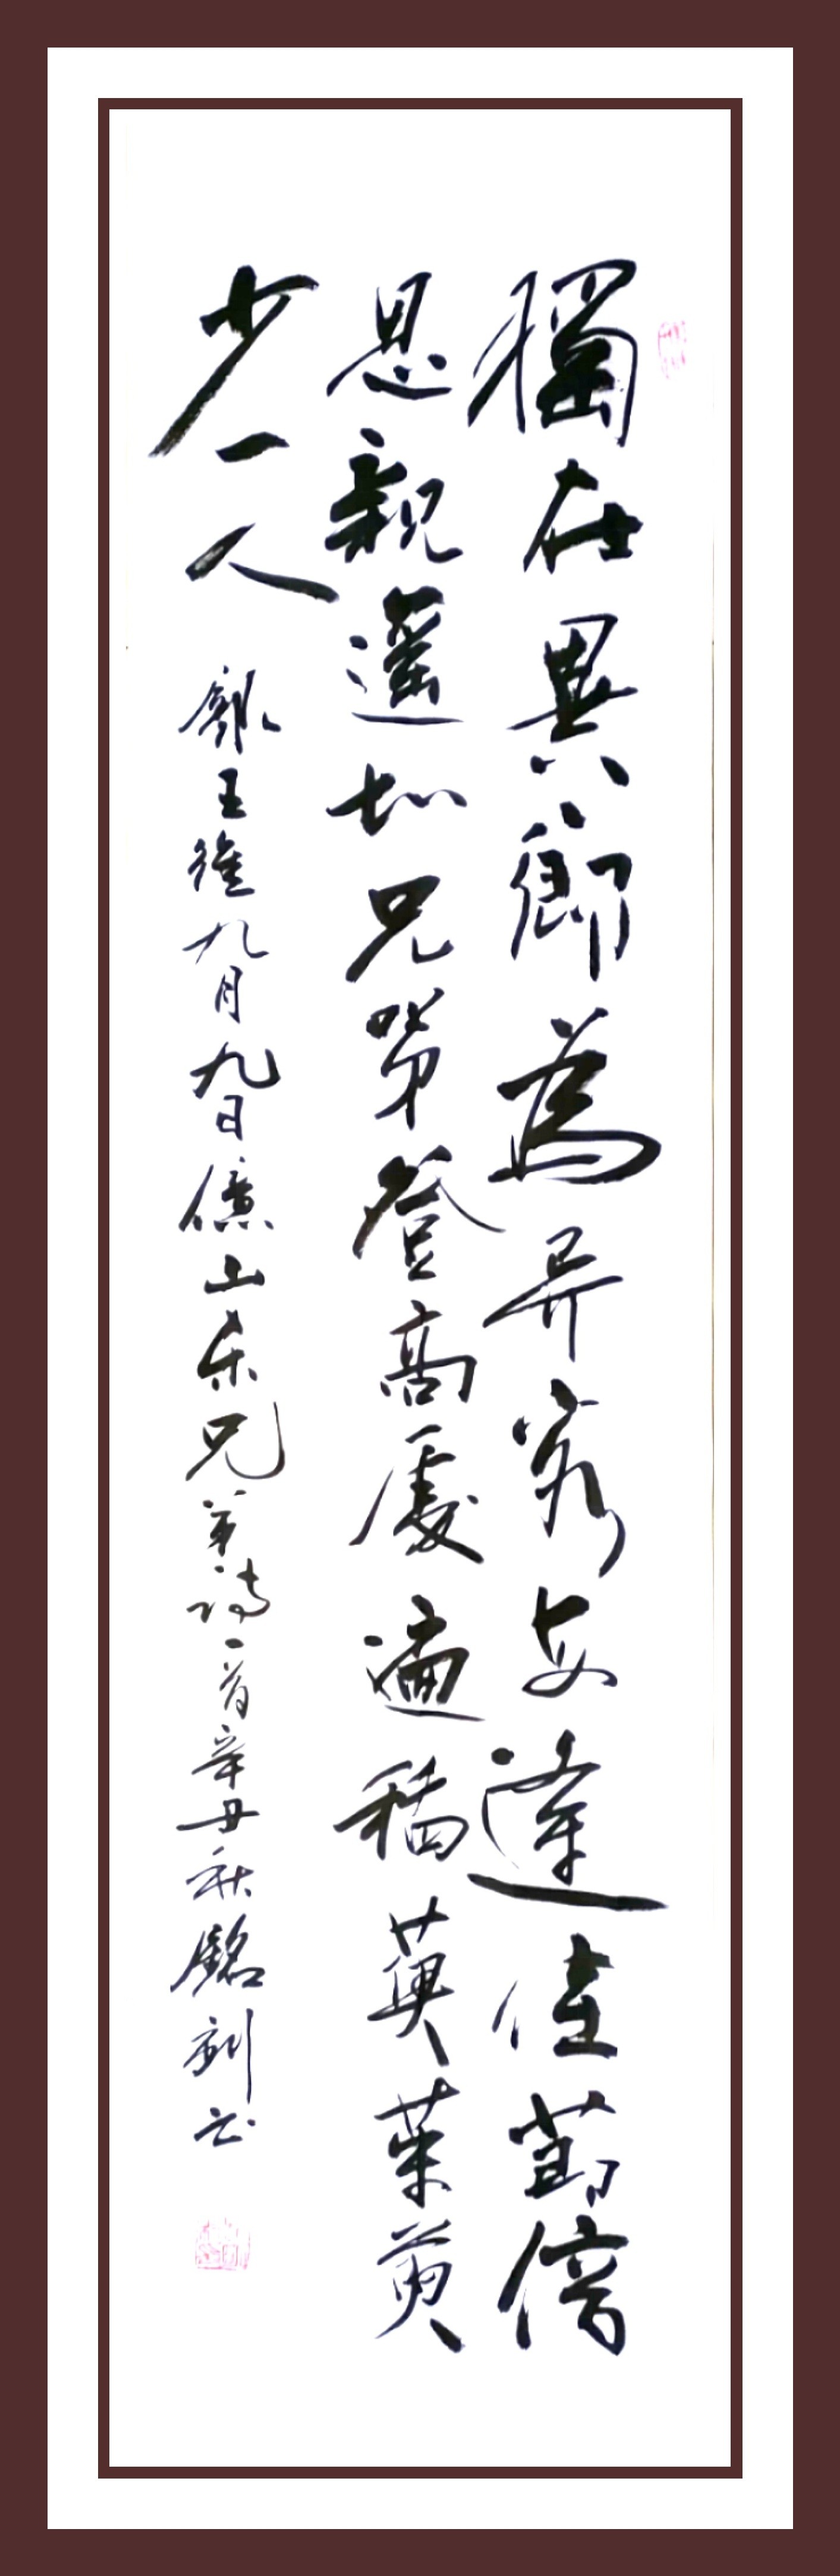 獨在異鄉為异客每逢佳節倍
思親遥知兄弟登高處遍插萸茱萸
少一人 錄王維九月九日億山东兄弟詩一首辛丑秋銘书